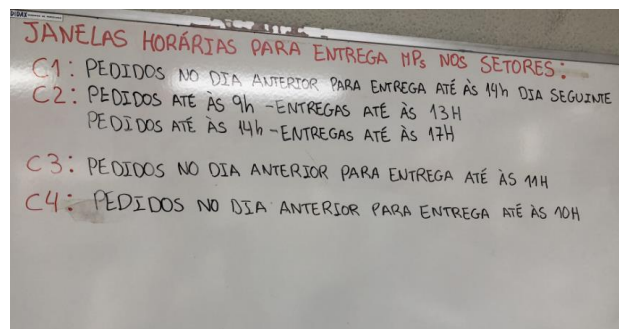 JANELAS HORÁRIAS PARA ENTREGA MPs NOS SETORES:
C1: PEDIDOS NO DIA ANTERIOR PARA ENTREGA ATÉ ÀS 14h DIA SEGUINTE
C2: PEDIDOS ATÉ ÀS 9h - ENTREGAS ATÉ ÀS 13H
PEDIDOS ATÉ ÀS 14h - ENTREGAS ATÉ ÀS 17H
C3: PEDIDOS NO DIA ANTERIOR PARA ENTREGA ATÉ ÀS 11H
C4: PEDIDOS NO DIA ANTERIOR PARA ENTREGA ATÉ ÀS 10H